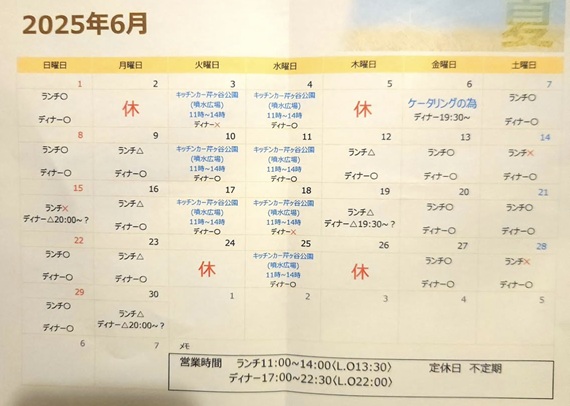 2025年6月
夏
日曜日 月曜日 火曜日 水曜日 木曜日 金曜日 土曜日
1 2 3 4 5 6 7
ランチ〇
ディナー〇
休
キッチンカー芹ヶ谷公園
(噴水広場)
11時~14時
ディナー×
キッチンカー芹ヶ谷公園
(噴水広場)
11時~14時
ディナー〇
休
ケータリングの為
ディナー19:30~
ランチ〇
ディナー〇
8 9 10 11 12 13 14
ランチ〇
ディナー〇
ランチ△
ディナー〇
キッチンカー芹ヶ谷公園
(噴水広場)
11時~14時
ディナー〇
キッチンカー芹ヶ谷公園
(噴水広場)
11時~14時
ディナー〇
ランチ△
ディナー〇
ランチ〇
ディナー〇
ランチ×
ディナー〇
15 16 17 18 19 20 21
ランチ×
ディナー△20:00~?
ランチ△
ディナー〇
キッチンカー芹ヶ谷公園
(噴水広場)
11時~14時
ディナー〇
キッチンカー芹ヶ谷公園
(噴水広場)
11時~14時
ディナー×
ランチ△
ディナー△19:30~?
ランチ〇
ディナー〇
ランチ〇
ディナー〇
22 23 24 25 26 27 28
ランチ〇
ディナー〇
ランチ△
ディナー〇
休
キッチンカー芹ヶ谷公園
(噴水広場)
11時~14時
ディナー〇
休
ランチ〇
ディナー〇
ランチ×
ディナー〇
29 30 1 2 3 4 5
ランチ〇
ディナー〇
ランチ△
ディナー△20:00~?
6 7 メモ
営業時間 ランチ11:00~14:00〈L.O13:30〉 定休日 不定期
ディナー17:00~22:30〈L.O22:00〉